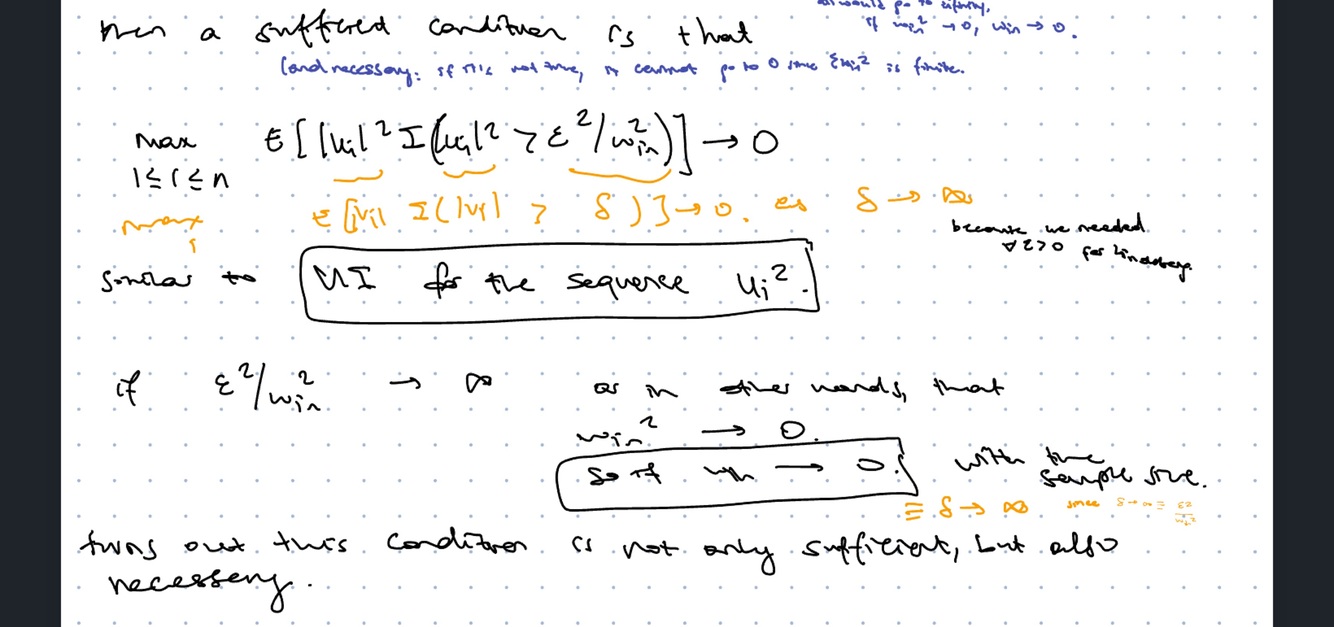 would go to infinity,
if win² → 0, win → 0.
then a sufficed condition is that
(and necessary: if this not true, it cannot go to 0 since Σwin² is finite.
max E[|ui|² I(|ui|² > ε²/win²)] → 0
1≤i≤n
max E[|vi| I(|vi| > δ)] → 0. as δ → ∞
i
because we needed
∀ε>0 for Lindeberg.
similar to UI for the sequence ui².
if ε²/win² → ∞ or in other words, that
win² → 0.
so if win → 0. with the
sample size.
≡ δ → ∞ since δ→∞ ≡ ε²/win²
turns out this condition is not only sufficient, but also
necessary.